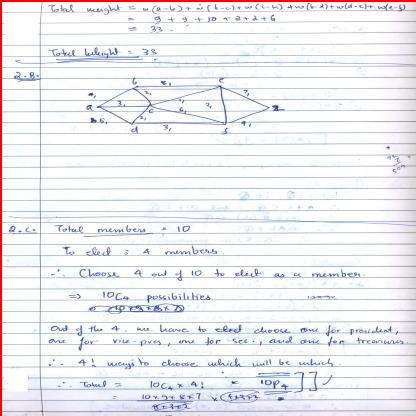 Total weight = w(a-b) + w(b-c) + w(c-h) + w(b-d) + w(d-e) + w(e-f)
= 9 + 9 + 10 + 2 + 2 + 6
= 33.
Total weight = 33
2.B.
b 8, e
a 3, c 7, z
d 3, f 4,
2.C. Total members = 10
To elect = 4 members.
∴ Choose 4 out of 10 to elect as a member.
⇒ 10C4 possibilities
Out of the 4, we have to elect choose one for president,
one for vice-pres, one for sec., and one for treasurer.
∴ 4! ways to choose which will be which.
∴ Total = 10C4 x 4! = 10P4
= 10 x 9 x 8 x 7